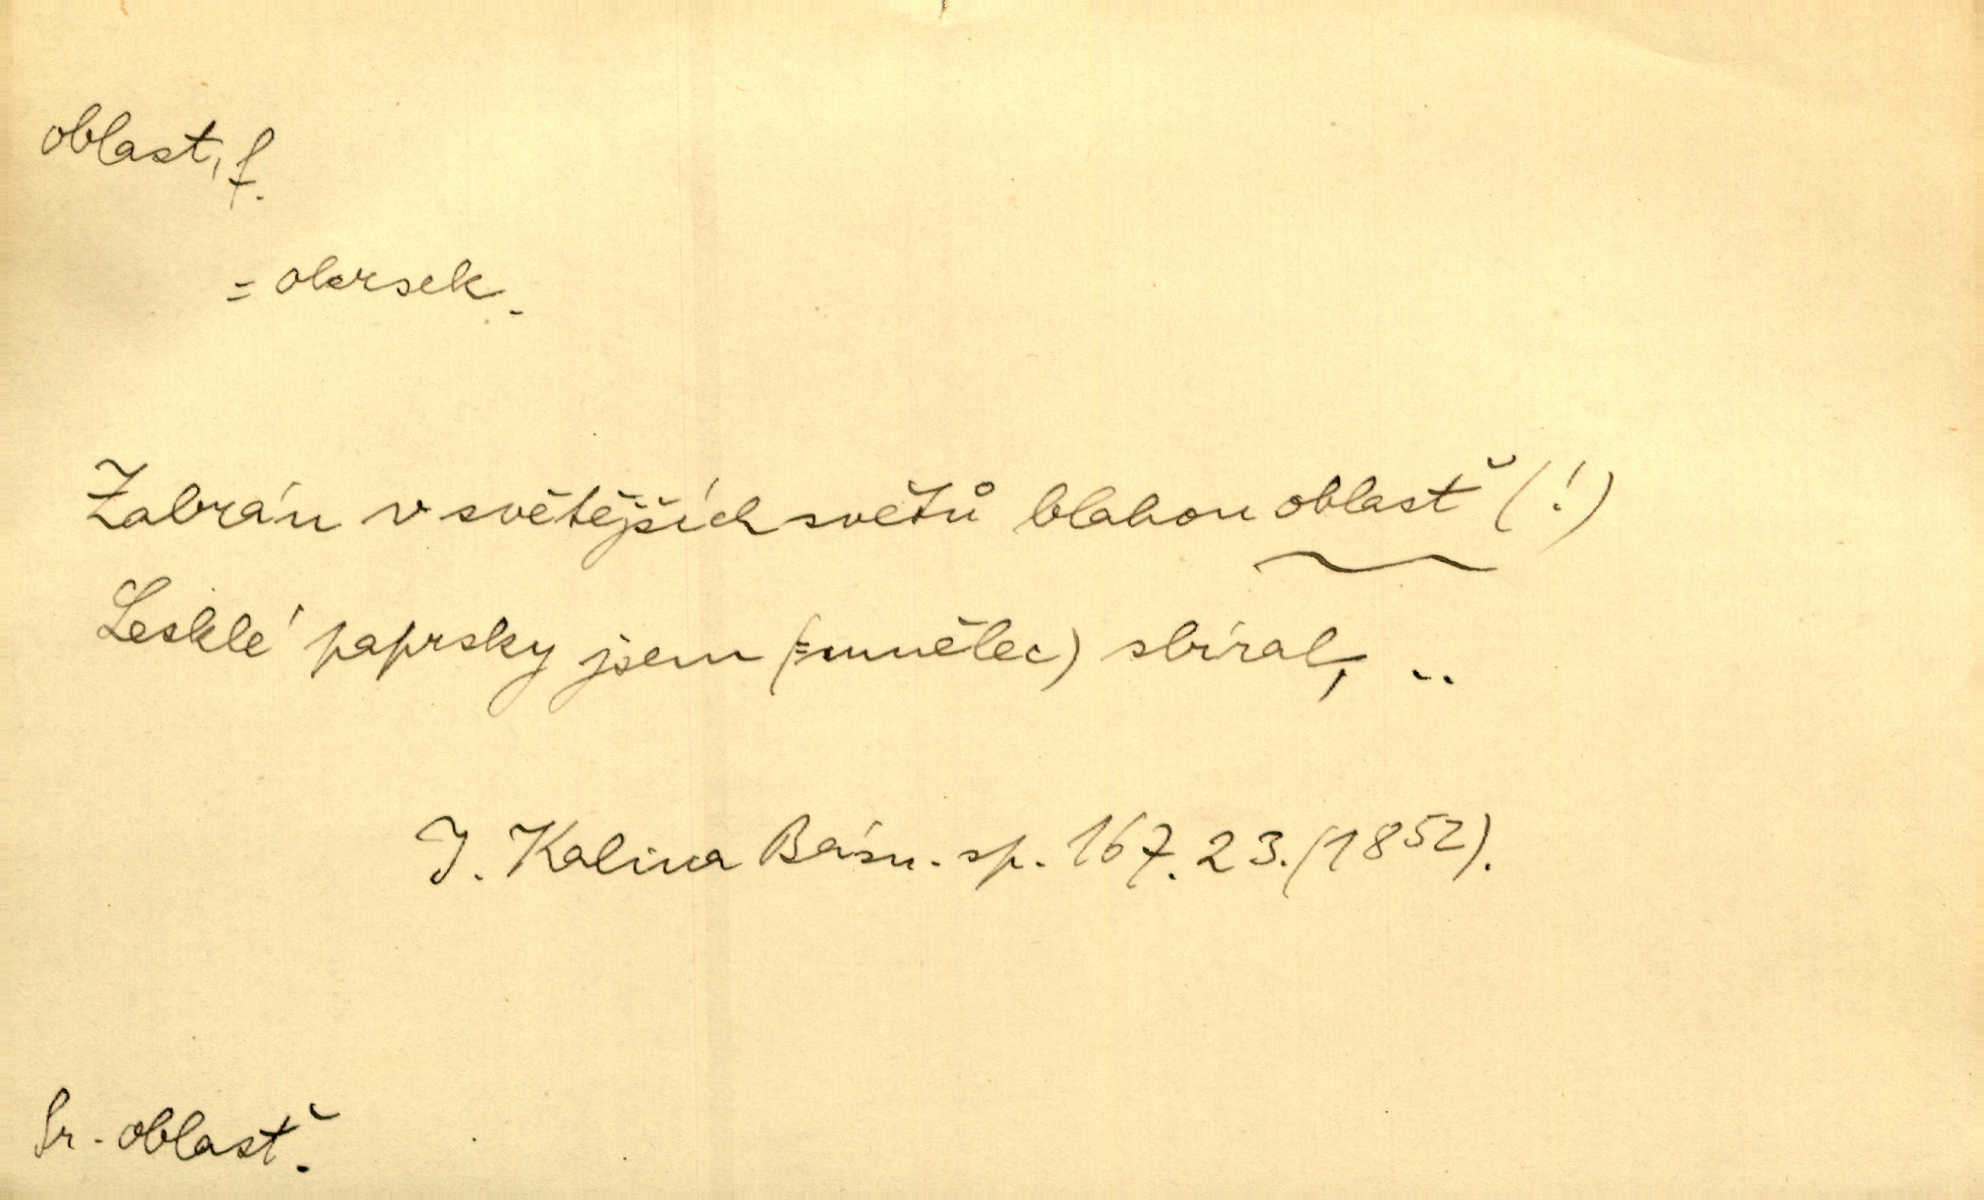 oblast, f.
= okrsek.
Zabrán v světějších světů blahou oblasť (!)
Lesklé paprsky jsem (=umělec) sbíral, ..
J. Kalina Básn. sp. 167. 23. (1852).
Sr. oblasť.